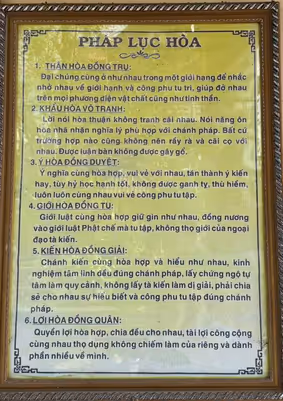 PHÁP LỤC HÒA
1. THÂN HÒA ĐỒNG TRỤ:
Đại chúng cùng ở như nhau trong một giới hạng để nhắc
nhở nhau về giới hạnh và công phu tu trì, giúp đở nhau
trên mọi phương diện vật chất cũng như tinh thần.
2. KHẨU HÒA VÔ TRANH:
Lời nói hòa thuận không tranh cải nhau. Nói năng ôn
hòa nhã nhặn nghĩa lý phù hợp với chánh pháp. Bất cứ
trường hợp nào cũng không nên rầy rà và cải cọ với
nhau. Được luận bàn không được gây gổ.
3. Ý HÒA ĐỒNG DUYỆT:
Ý nghĩa cùng hòa hợp, vui vẻ với nhau, tán thành ý kiến
hay, tùy hỷ hạnh tốt, không được ganh tỵ, thù hiềm,
luôn luôn cùng nhau vui vẻ công phu tu tập.
4. GIỚI HÒA ĐỒNG TU:
Giới luật cùng hòa hợp giữ gìn như nhau, đồng nương
vào giới luật Phật chế mà tu tập, không thọ giới của ngoại
đạo tà kiến.
5. KIẾN HÒA ĐỒNG GIẢI:
Chánh kiến cùng hòa hợp và hiểu như nhau, kinh
nghiệm tâm linh đều đúng chánh pháp, lấy chứng ngộ tự
tâm làm quy cảnh, không lấy tà kiến làm dị giải, phải chia
sẻ cho nhau sự hiểu biết và công phu tu tập đúng chánh
pháp.
6. LỢI HÒA ĐỒNG QUÂN:
Quyền lợi hòa hợp, chia đều cho nhau, tài lợi công cộng
cùng nhau thọ dụng không chiếm làm của riêng và dành
phần nhiều về mình.